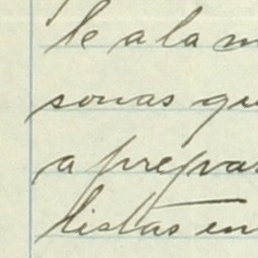 le a la m
sonas qu
a prepar
listas en